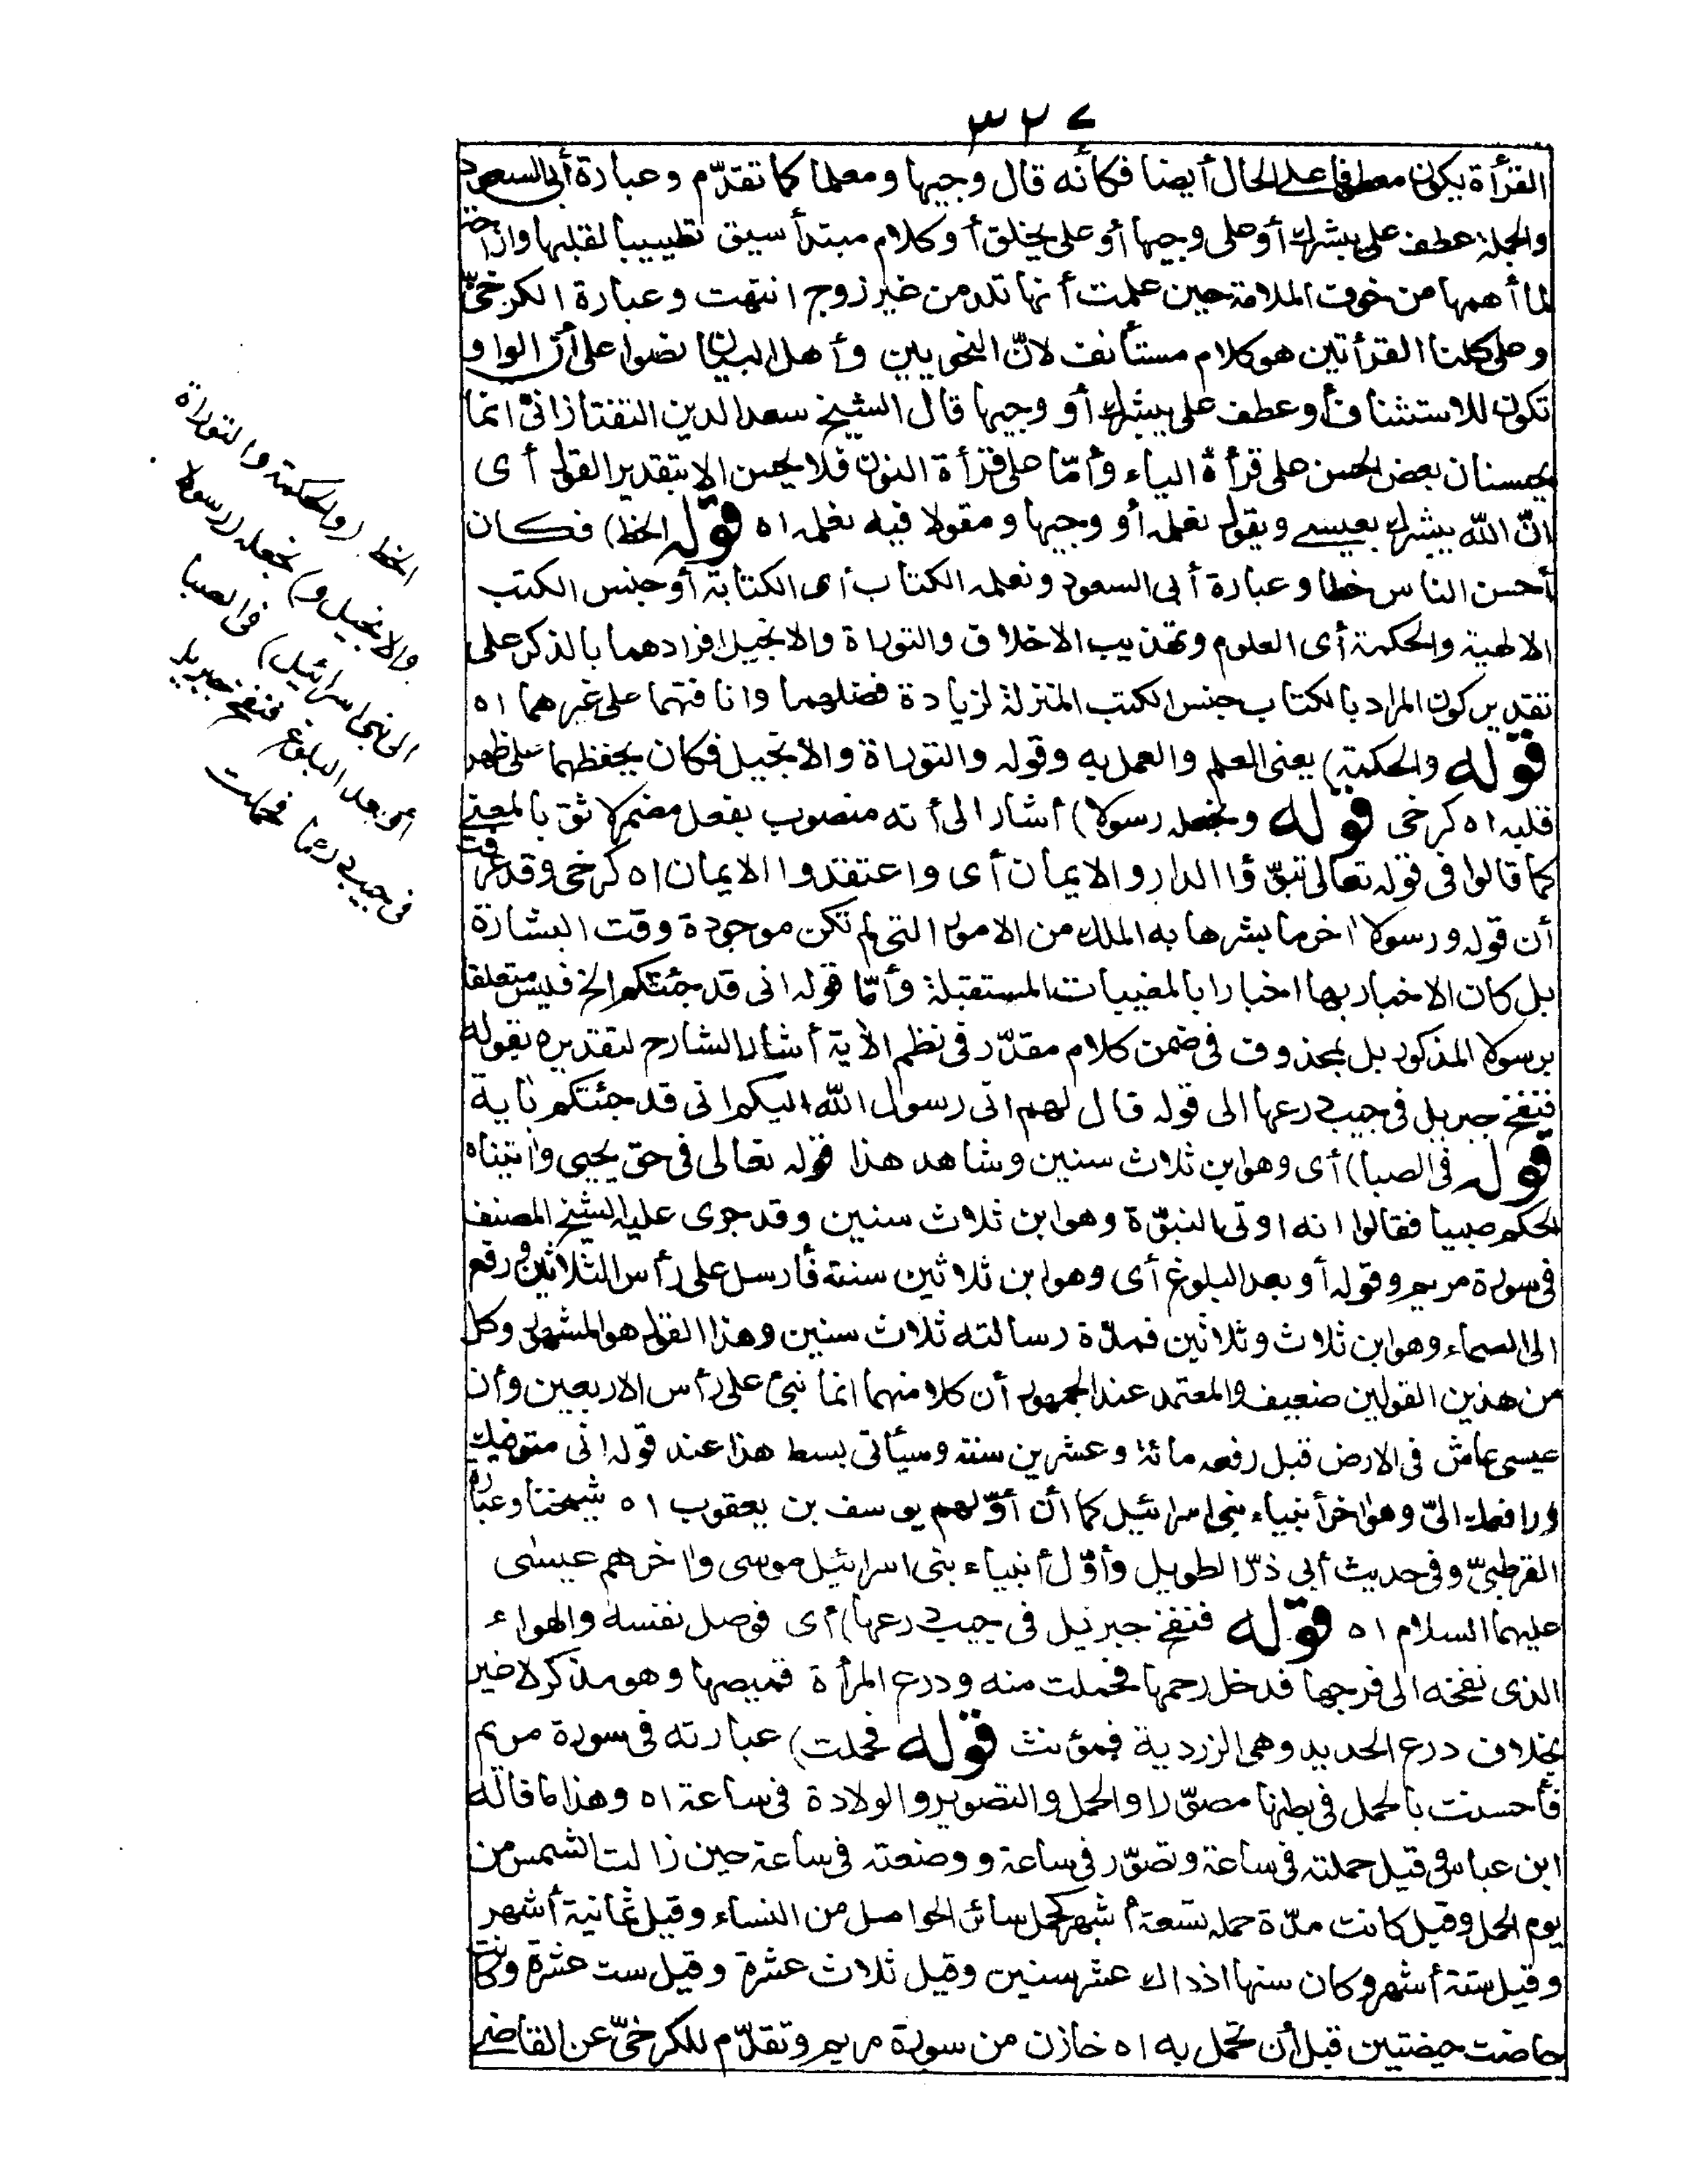 ٣٢٧
القرأة يكون معطوفا على الحال أيضا فكأنه قال وجيها ومعلما كما تقدّم وعبارة أبى السعود
والجملة عطف على يبشرك أو على وجيها أو على يخلق أو كلام مبتدأ سيق تطييبا لقلبها وازاحة
لما أهمها من خوف الملامة حين علمت أنها تلد من غير زوج انتهت وعبارة الكرخىّ
وعلى كلتا القرأتين هو كلام مستأنف لانّ النحويين وأهل البيان نصوا على أنّ الواو
تكون للاستئناف أو عطف على يبشرك أو وجيها قال الشيخ سعد الدين التفتازانىّ انما
يحسنان بعض الحسن على قرأة الياء وأمّا على قرأة النون فلا يحسن الا بتقدير القول أى
انّ الله يبشرك بعيسى ويقول نعلمه أو وجيها ومقولا فيه نعلمه اه قوله الخط) فكان
أحسن الناس خطا وعبارة أبى السعود ونعلمه الكتاب أى الكتابة أو جنس الكتب
الالهية والحكمة أى العلوم وتهذيب الاخلاق والتوراة والانجيل افرادهما بالذكر على
تقدير كون المراد بالكتاب جنس الكتب المنزلة لزيادة فضلهما وانافتهما على غيرهما اه
قوله والحكمة) يعنى العلم والعمل به وقوله والتوراة والانجيل فكان يحفظهما على ظهر
قلبه اه كرخى قوله ونجعله رسولا) أشار الى أنه منصوب بفعل مضمر لائق بالمعنى
كما قالوا فى قوله تعالى تبوّؤا الدار والايمان أى واعتقدوا الايمان اه كرخى وقد عرفت
أن قوله ورسولا اخر ما بشرها به الملك من الامور التى لم تكن موجودة وقت البشارة
بل كان الاخبار بها اخبارا بالمغيبات المستقبلة وأمّا قوله انى قد جئتكم الخ فليس متعلقا
برسولا المذكور بل بمحذوف فى ضمن كلام مقدّر فى نظم الآية أشار الشارح لتقديره بقوله
فنفخ جبريل فى جيب درعها الى قوله قال لهم انى رسول الله اليكم انى قد جئتكم بٰاية
قوله فى الصبا) أى وهو ابن ثلاث سنين وشاهد هذا قوله تعالى فى حق يحيى واٰتيناه
الحكم صبيا فقالوا انه اوتى النبوّة وهو ابن ثلاث سنين وقد جرى عليه الشيخ المصنف
فى سورة مريم وقوله أو بعد البلوغ أى وهو ابن ثلاثين سنة فأرسل على رأس الثلاثين ورفع
الى السماء وهو ابن ثلاث وثلاثين فمدّة رسالته ثلاث سنين وهذا القول هو المشهور وكل
من هذين القولين ضعيف والمعتمد عند الجمهور أن كلا منهما انما نبئ على رأس الاربعين وأن
عيسى عاش فى الارض قبل رفعه مائة وعشرين سنة وسيأتى بسط هذا عند قوله انى متوفيك
ورافعك الىّ وهو اٰخر أنبياء بنى اسرائيل كما أن أوّلهم يوسف بن يعقوب اه شيخنا وعبارة
القرطبىّ وفى حديث أبى ذرّ الطويل وأوّل أنبياء بنى اسرائيل موسى واٰخرهم عيسى
عليهما السلام اه قوله فنفخ جبرئيل فى جيب درعها) أى فوصل نفسه والهواء
الذى نفخه الى فرجها فدخل رحمها فحملت منه ودرع المرأة قميصها وهو مذكر لا غير
بخلاف درع الحديد وهى الزردية فمؤنث قوله فحملت) عبارته فى سورة مريم
فأحست بالحمل فى بطنها مصوّرا والحمل والتصوير والولادة فى ساعة اه وهذا ما قاله
ابن عباس وقيل حملته فى ساعة وتصوّر فى ساعة ووضعته فى ساعة حين زالت الشمس من
يوم الحمل وقيل كانت مدّة حمله تسعة أشهر كحمل سائر الحوامل من النساء وقيل ثمانية أشهر
وقيل ستة أشهر وكان سنها اذ ذاك عشر سنين وقيل ثلاث عشرة وقيل ست عشرة وكانت
حاضت حيضتين قبل أن تحمل به اه خازن من سورة مريم وتقدّم للكرخىّ عن القاضى
الخط (والحكمة والتوراة
والانجيل و) نجعله (رسولا
الى بنى اسرائيل) فى الصبا
أو بعد البلوغ فنفخ جبريل
فى جيب درعها فحملت